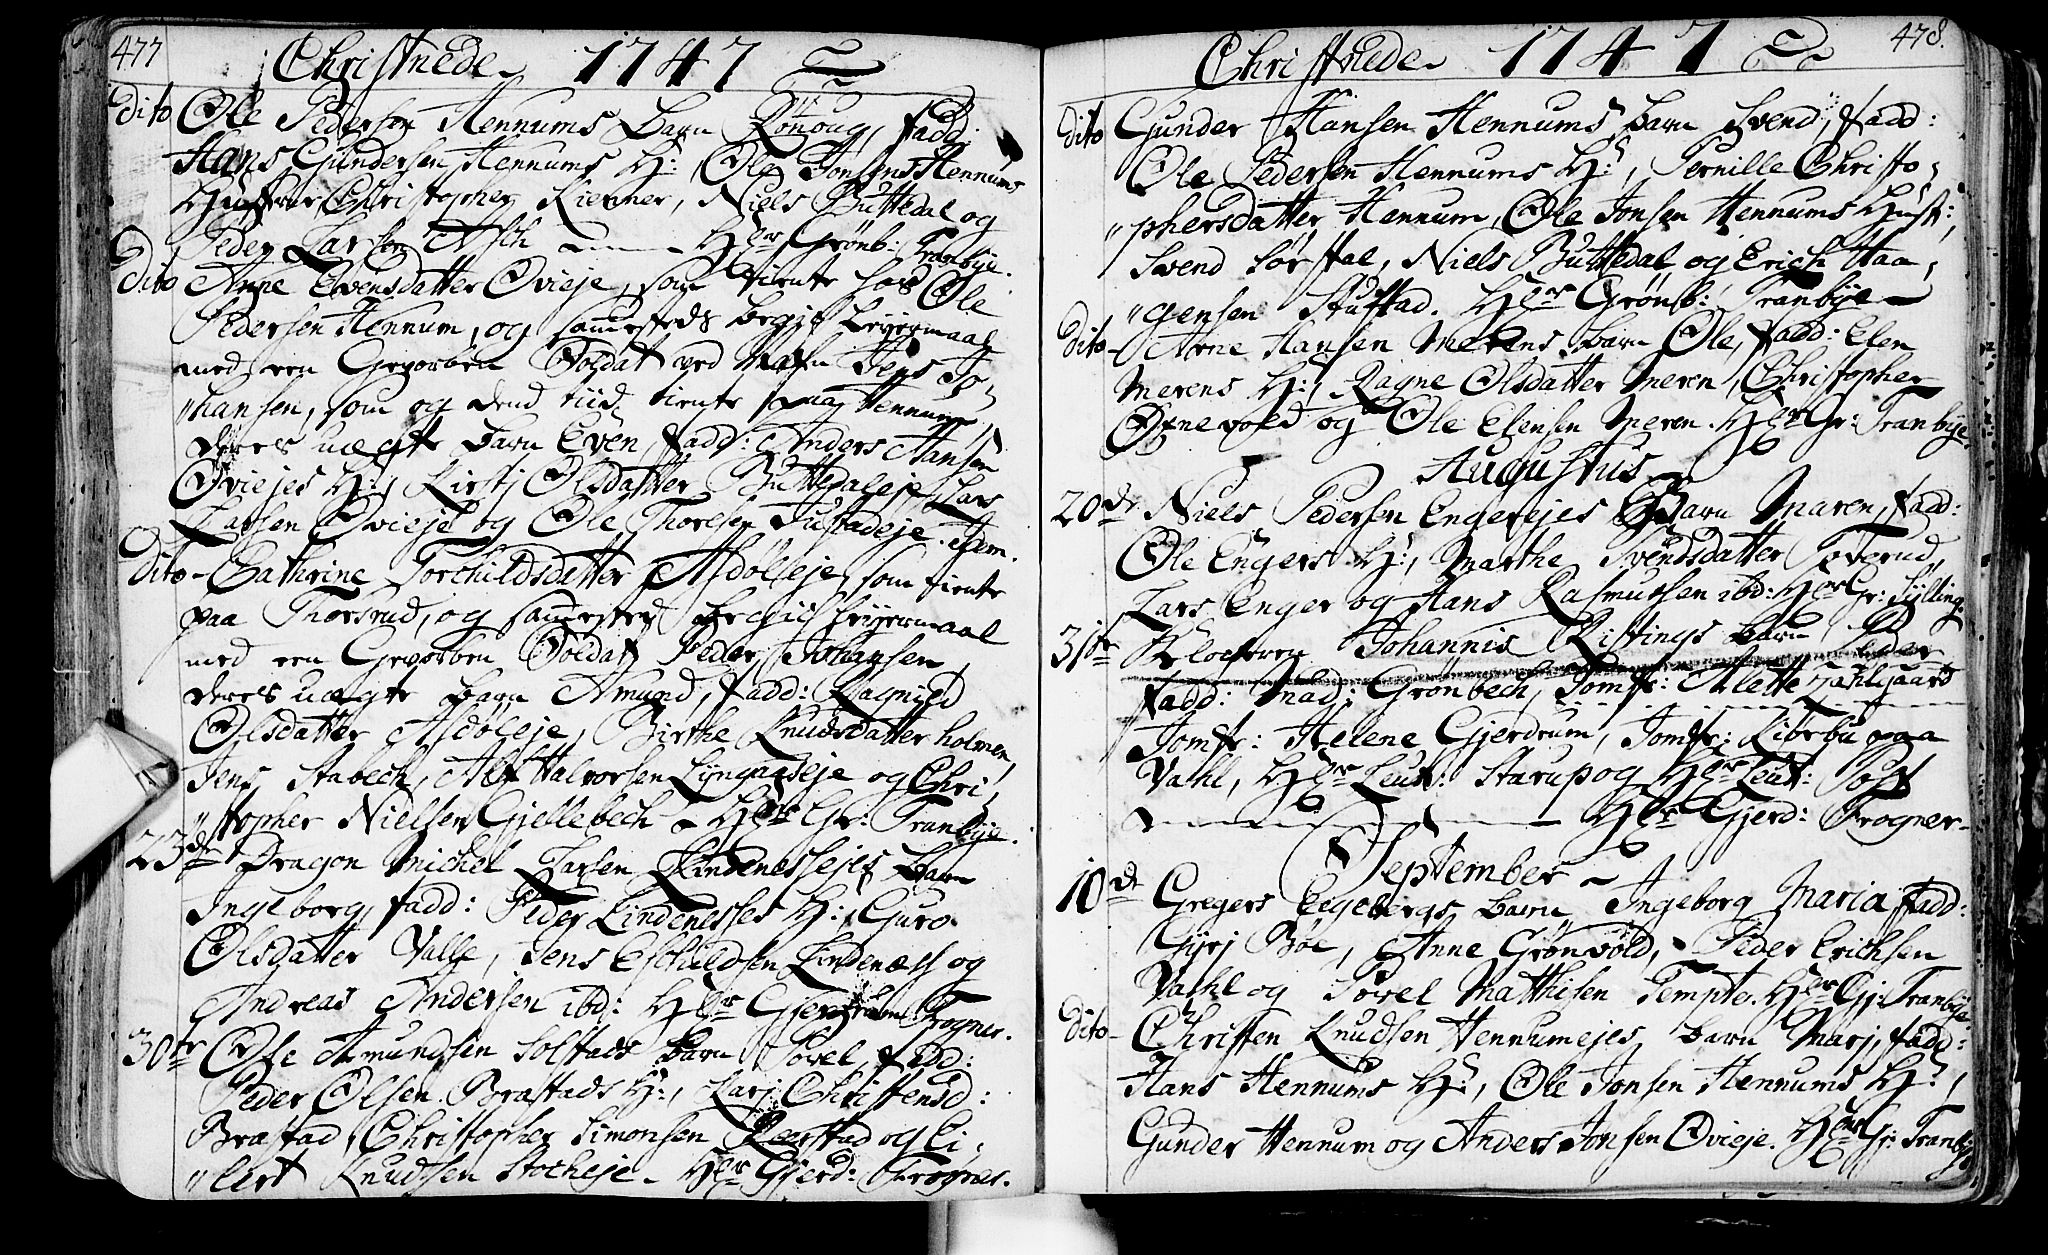 477
Christnede 1747
dito Ole Pedersen Hennums barn Ronoug, fadd:
Hans Gundersen Hennums H:, Ole Jonsens Hennums
Hustrue, Christopher Kierner, Niels Buttedal og
Peder Larsen Asch Hr Grønb: Tranbye.
Dito Anne Evensdatter Ovieje, som tiente hos Ole
Pedersen Hennum, og sammesteds begik leyermaal
med een Gevorben Soldat ved Nafn Jens Jo
"hansen, som og dend tiid tiente paa Hennum,
deres uægte barn Even, fadd: Anders Hansen
Oviejes H:, Kirstj Olsdatter Buttedaleje, Lars
Larsen Ovieje og Ole Thoresen Justadeje. Idem.
Dito- Cathrine Torchildsdatter Asdøleje, som tiente
paa Thorsrud, og sammested begik leyermaal
med een Gevorben Soldat Peder Johansen,
deres uægte barn Amund, fadd: Ragnild
Olsdatter Asdøleje, Birthe Knudsdatter holmen,
Jens Stabech, Alf Halvorsen Lyngaaseje og Chri,
"stopher Nielsen Gjellebech - Hr Gr: Tranbye.
23de Dragon Michel Larsen Lindenessejes barn
Ingeborg, fadd: Peder Lindenesses H:, Guro
Olsdatter Valle, Jens Eschildsen Lindenæss og
Andreas Andersen ibd: Hr Gjerdrum Frogner.
30te Ole Amundsen Solstads barn Povel, fadd:
Peder Olsen Brastads H:, Larj Christensd:
Brastad, Christopher Simonsen Rerstad og Ei,
"lert Knudsen Stocheje - Hr Gjerd: Frogner.
478.
Christnede 1747
dito Gunder Hansen Hennums barn Svend, fadd:
Ole Pedersen Hennums H:, Pernille Christo,
"phersdatter Hennum, Ole Jonsen Hennums Hustr:,
Svend Sørstal, Niels Buttedal og Erich Haa,
"gensen Stustad. Hr Grønb: Tranbye -
dito- Arne Hansen Merens barn Ole, fadd: Elen
Merens H:, Ragne Olsdatter Meren, Christopher
Øxnevold og Ole Elensen Meren. Hr Gr: Tranbye.
Augustus
20de Niels Pedersen Engerejes Barn Maren, fadd:
Ole Engers H:, Marthe Svendsdatter Toverud,
Lars Enger og Hans Rasmussen ibd: Hr Gr: Sylling.
31te Klocheren Johannis Ristings barn Peder
fadd: Mad: Grønbech, Jomfr: Alette Dahlgaard
Jomfr: Helene Gjerdrum, Jomfr: Riörbu paa
Vahl, Hr Leut: Starup og Hr Leut: Post
Hr Gjerd: Frogner-
September
10de Gregers Eegebergs barn Ingeborg Maria fadd:
Gyrj Bøe, Anne Grønvold, Peder Erichsen
Vahl og Povel Matthisen Tempte. Hr Gj: Tranbye.
dito- Christen Knudsen Hennumejes barn Marj, fadd:
Hans Hennums H:, Ole Jonsen Hennums H:,
Gunder Hennum og Anders Jonsen Ovieje. Hr Gj: Tranbye